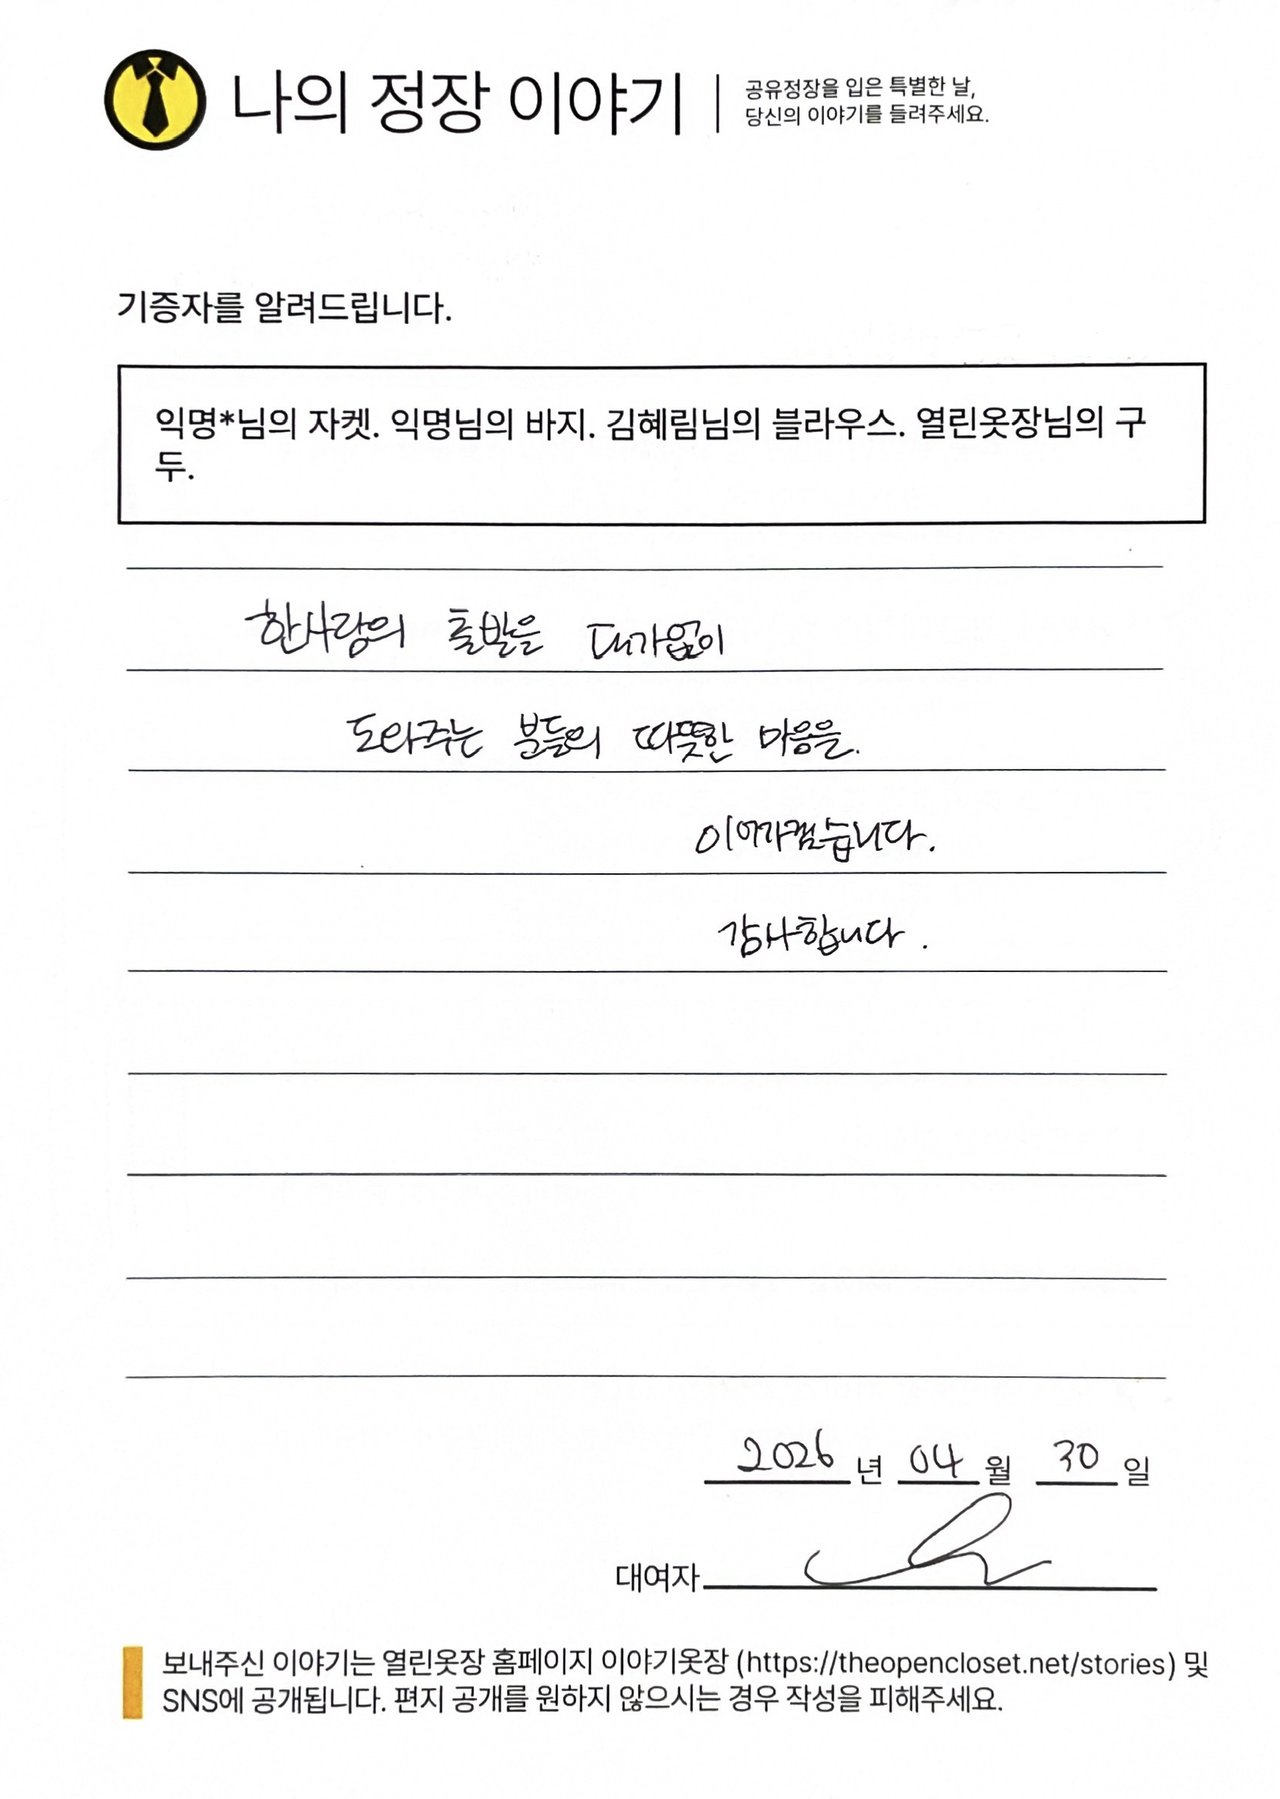 나의 정장 이야기
공유정장을 입은 특별한 날,
당신의 이야기를 들려주세요.
기증자를 알려드립니다.
익명*님의 자켓. 익명님의 바지. 김혜림님의 블라우스. 열린옷장님의 구
두.
한사람의 출발을 대가없이
도와주는 분들의 따뜻한 마음을.
이어가겠습니다.
감사합니다.
2026 년 04 월 30 일
대여자
보내주신 이야기는 열린옷장 홈페이지 이야기옷장 (https://theopencloset.net/stories) 및
SNS에 공개됩니다. 편지 공개를 원하지 않으시는 경우 작성을 피해주세요.